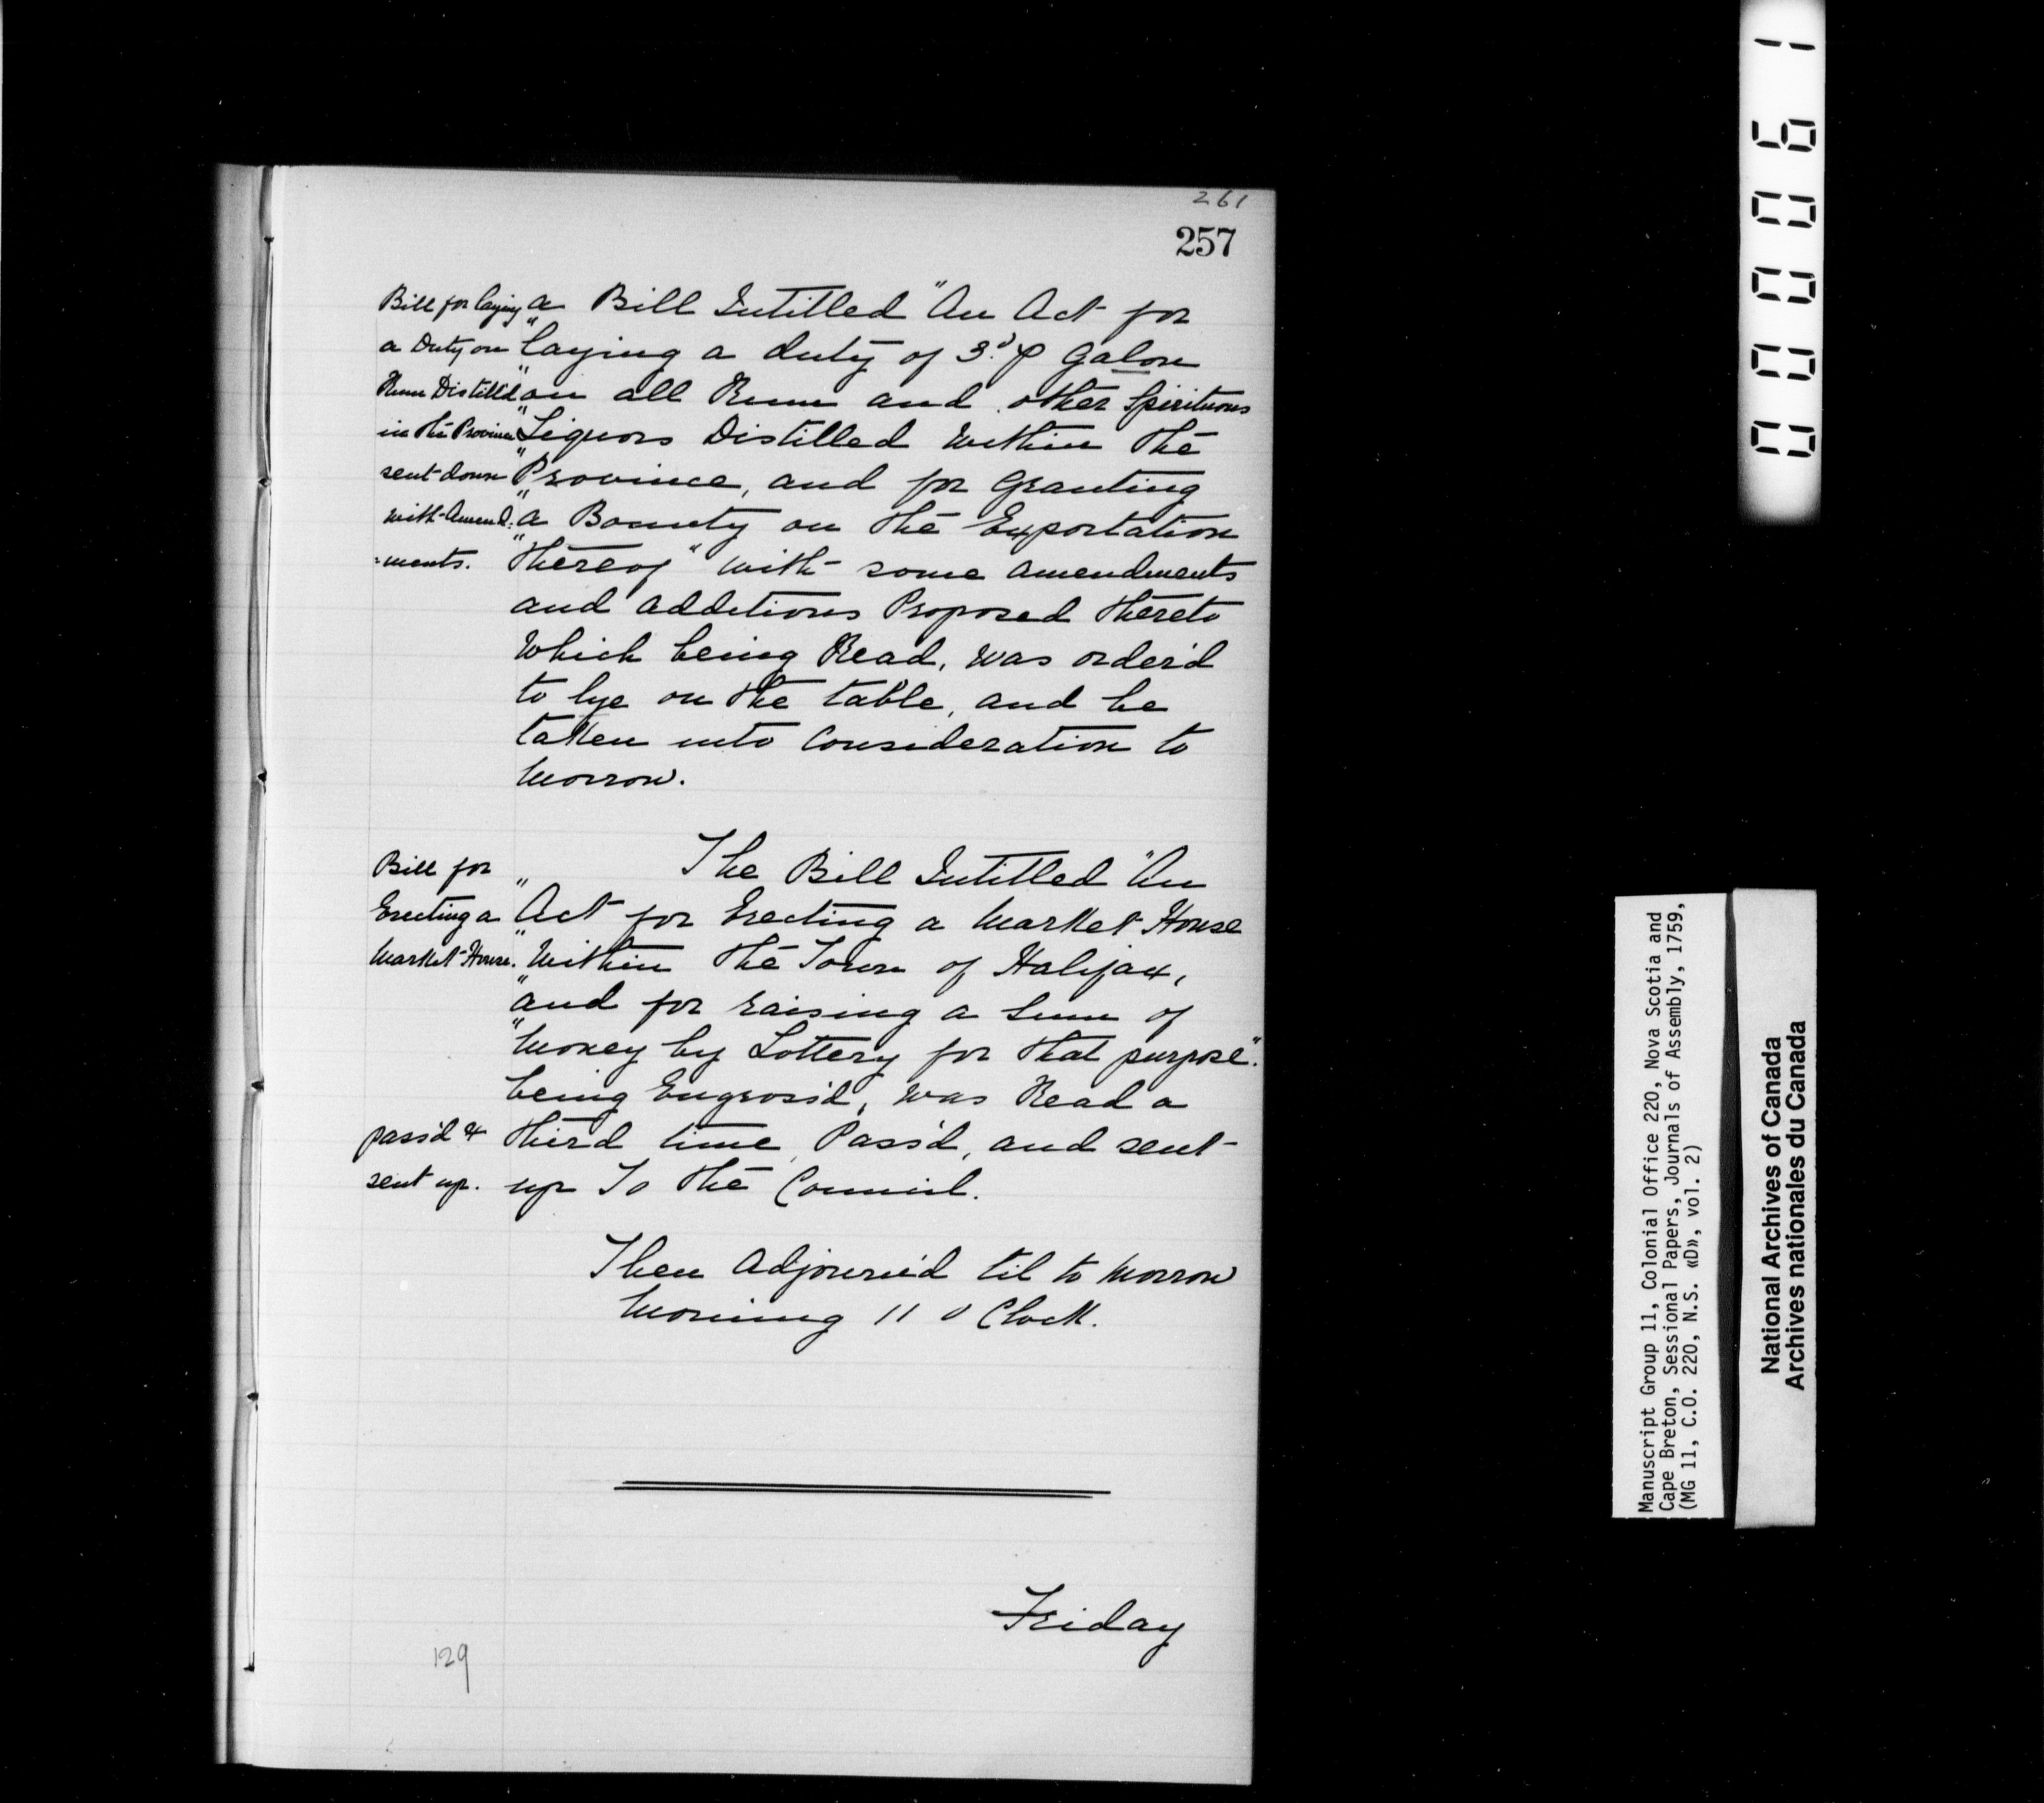 261
257
Bill for laying
a Duty on
Rum Distill'd
in the Province
sent down
with Amend:
:ments.
a Bill Intitled "An Act for
"laying a duty of 3.d ⅌ Galon
"on all Rum and other Spirituous
"Liquors Distilled Within the
"Province, and for Granting
"a Bounty on the Exportation
"thereof" with some amendments
and additions Proposed thereto
Which being Read, was order'd
to lye on the table, and be
taken into Consideration to
Morrow.
Bill for
Erecting a
Market House.
The Bill Intitled "An
"Act for Erecting a Market House
"Within the Town of Halifax,
"and for raising a Sum of
"Money by Lottery for that purpose".
being Engross'd, was Read a
third time, Pass'd, and sent
up To the Council.
pass'd &
sent up.
Then Adjourn'd til to Morrow
Morning 11 o Clock.
Friday
129
000061
Manuscript Group 11, Colonial Office 220, Nova Scotia and
Cape Breton, Sessional Papers, Journals of Assembly, 1759,
(MG 11, C.O. 220, N.S. «D», vol. 2)
National Archives of Canada
Archives nationales du Canada